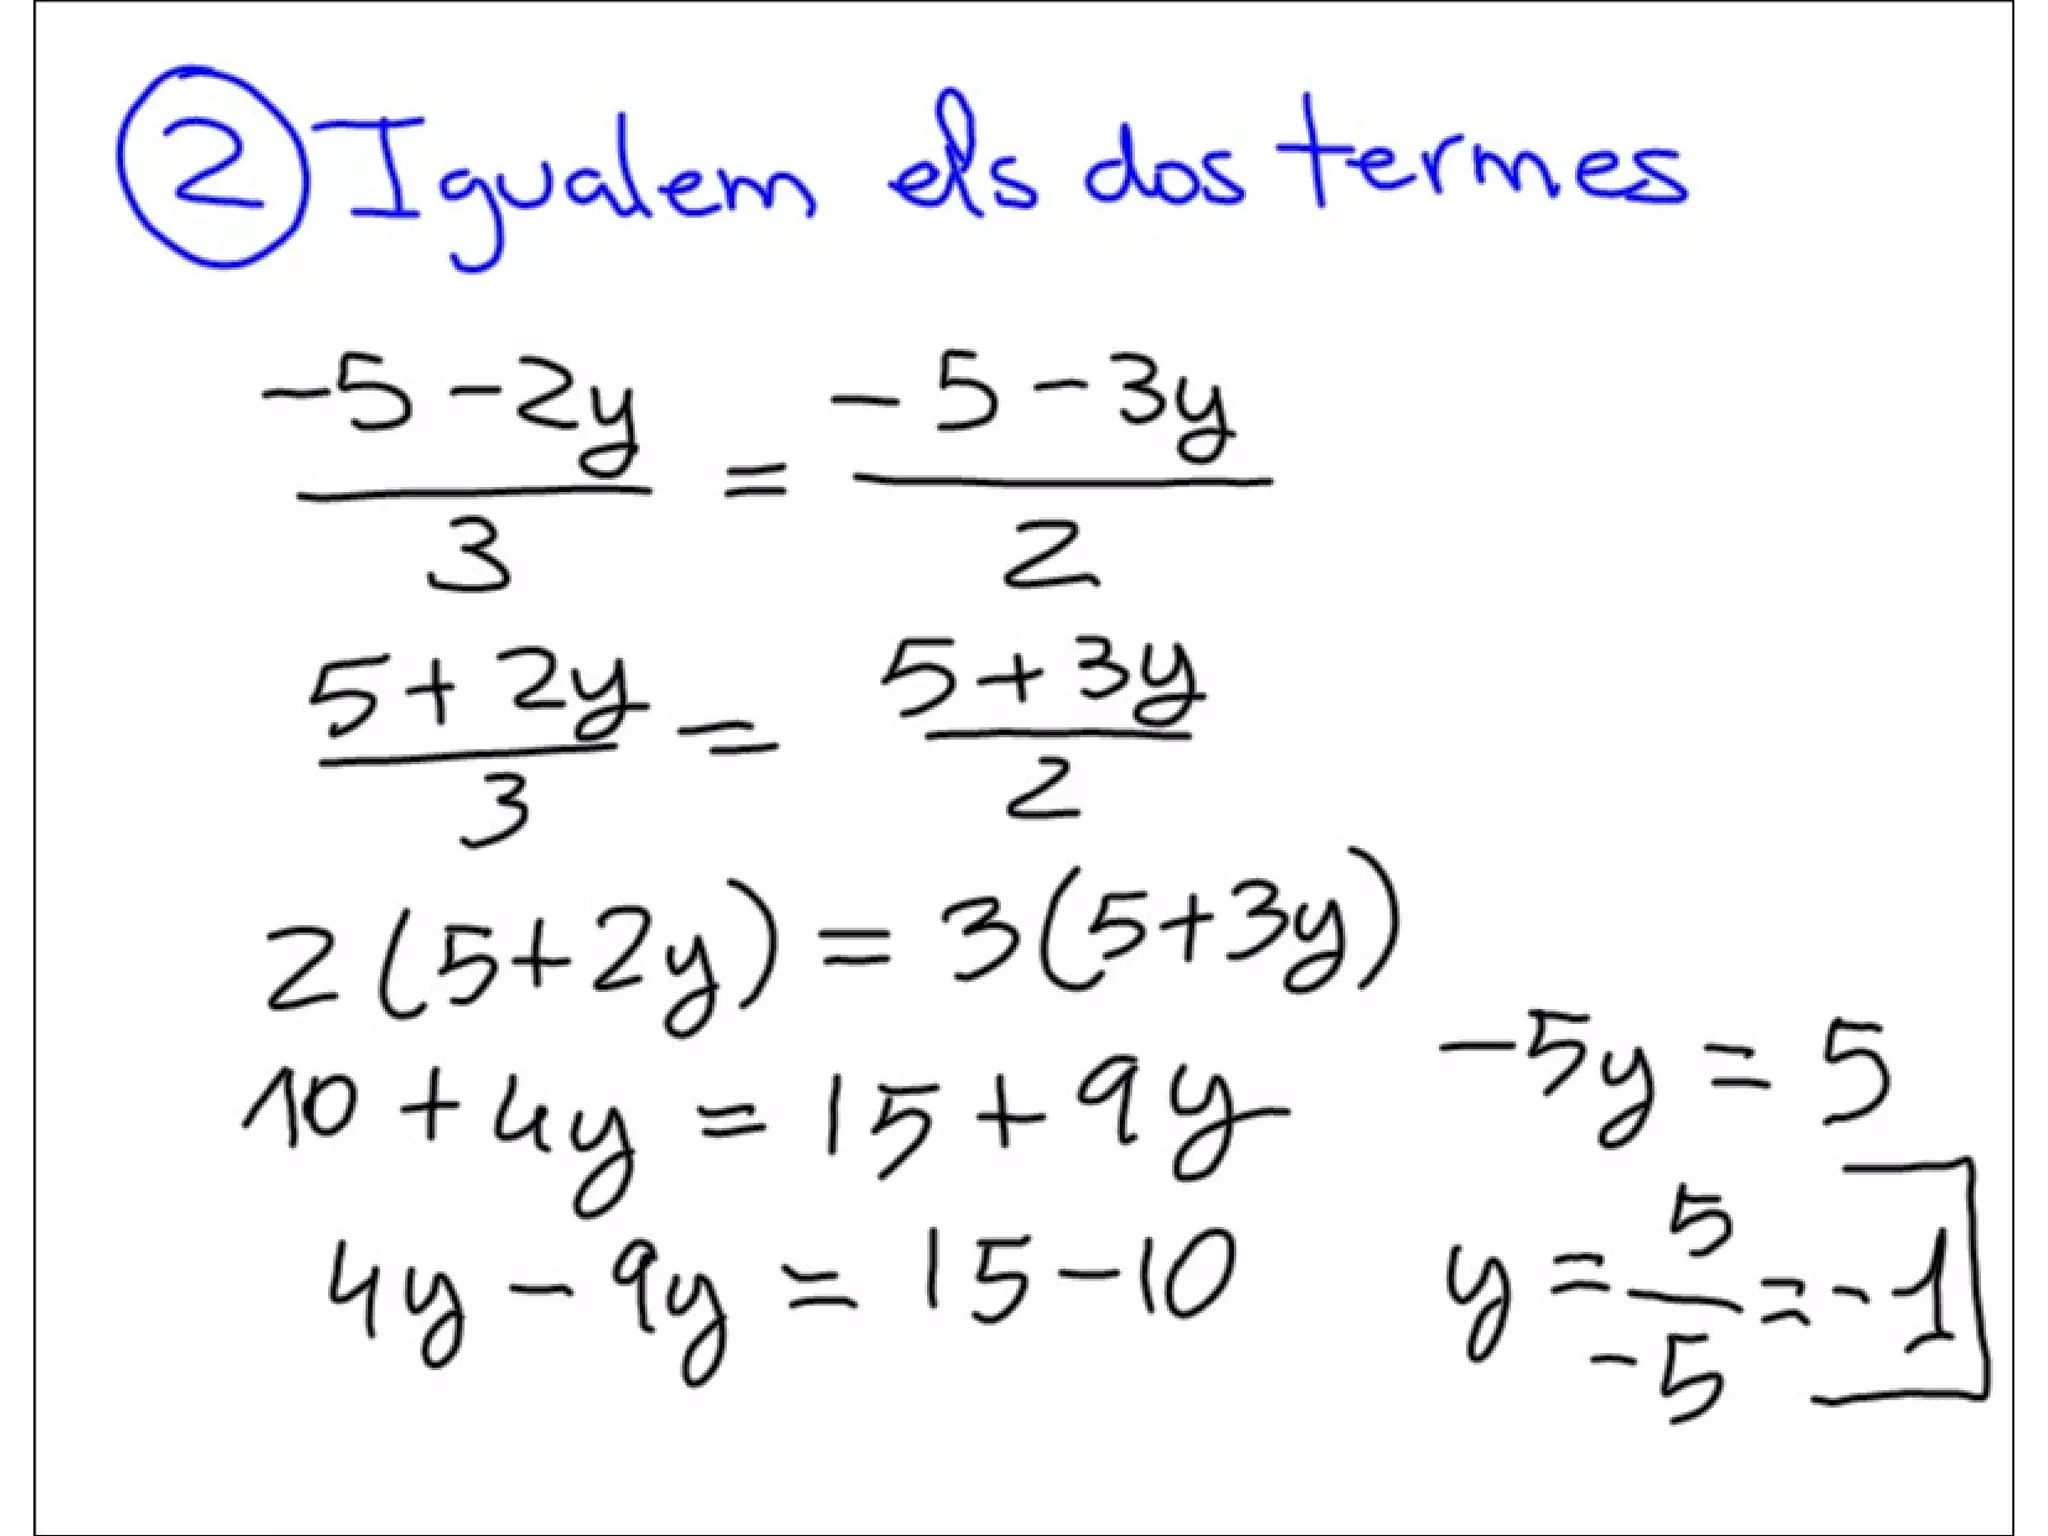 2 Igualem els dos termes
-5-2y/3 = -5-3y/2
5+2y/3 = 5+3y/2
2(5+2y) = 3(5+3y)
10+4y = 15+9y
4y-9y = 15-10
-5y = 5
y = 5/-5 = -1